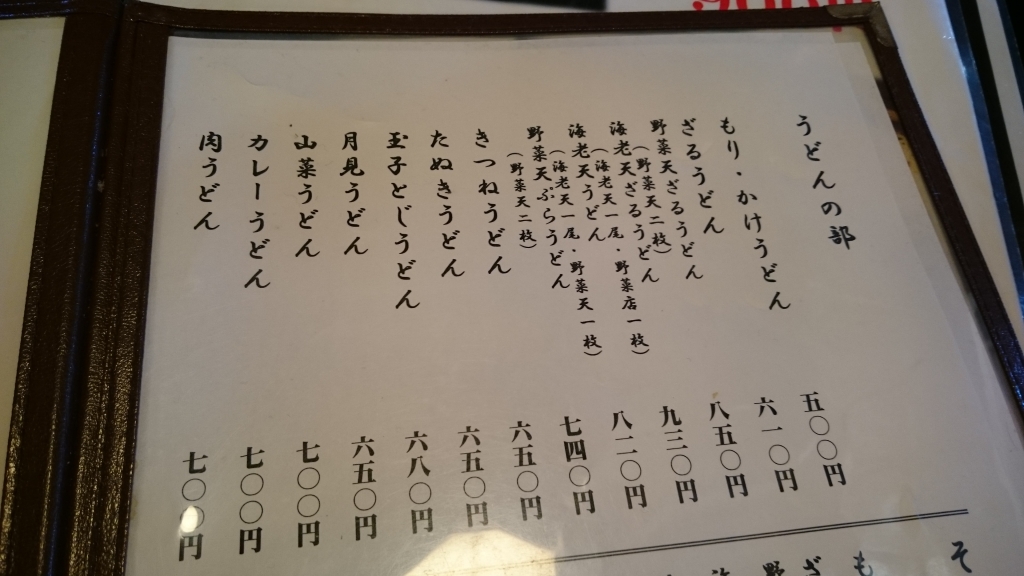 うどんの部
もり・かけうどん 五〇〇円
ざるうどん 六一〇円
野菜天ざるうどん 八五〇円
（野菜天二枚）
海老天ざるうどん 九三〇円
（海老天一尾・野菜店一枚）
海老天うどん 八二〇円
（海老天一尾・野菜天一枚）
野菜天ぷらうどん 七四〇円
（野菜天二枚）
きつねうどん 六五〇円
たぬきうどん 六五〇円
玉子とじうどん 六八〇円
月見うどん 六五〇円
山菜うどん 七〇〇円
カレーうどん 七〇〇円
肉うどん 七〇〇円
そ
も
ざ
野